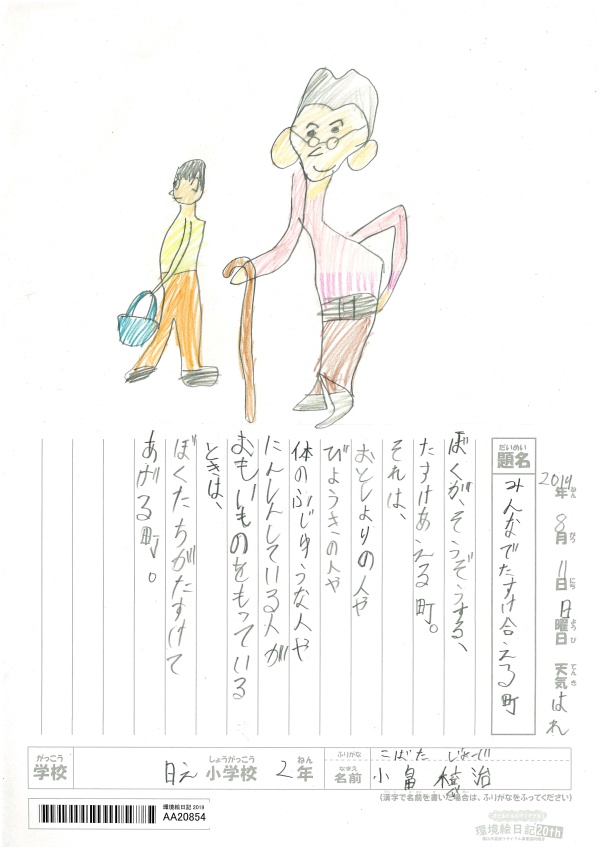 2019年 8月 11日 日曜日 天気 はれ
ねん がつ にち ようび てんき
だいめい
題名
みんなでたすけ合える町
ぼくが、そうぞうする、
たすけあえる町。
それは、
おとしよりの人や
びょうきの人や
体のふじゆうな人や
にんしんしている人が
おもいものをもっている
ときは、
ぼくたちがたすけて
あげる町。
がっこう しょうがっこう ねん ふりがな こばた
学校 日え 小学校 2年 なまえ 名前 小畠 治
(漢字で名前を書いた場合は、ふりがなをふってください)
環境絵日記 2019
AA20854
環境絵日記 20th